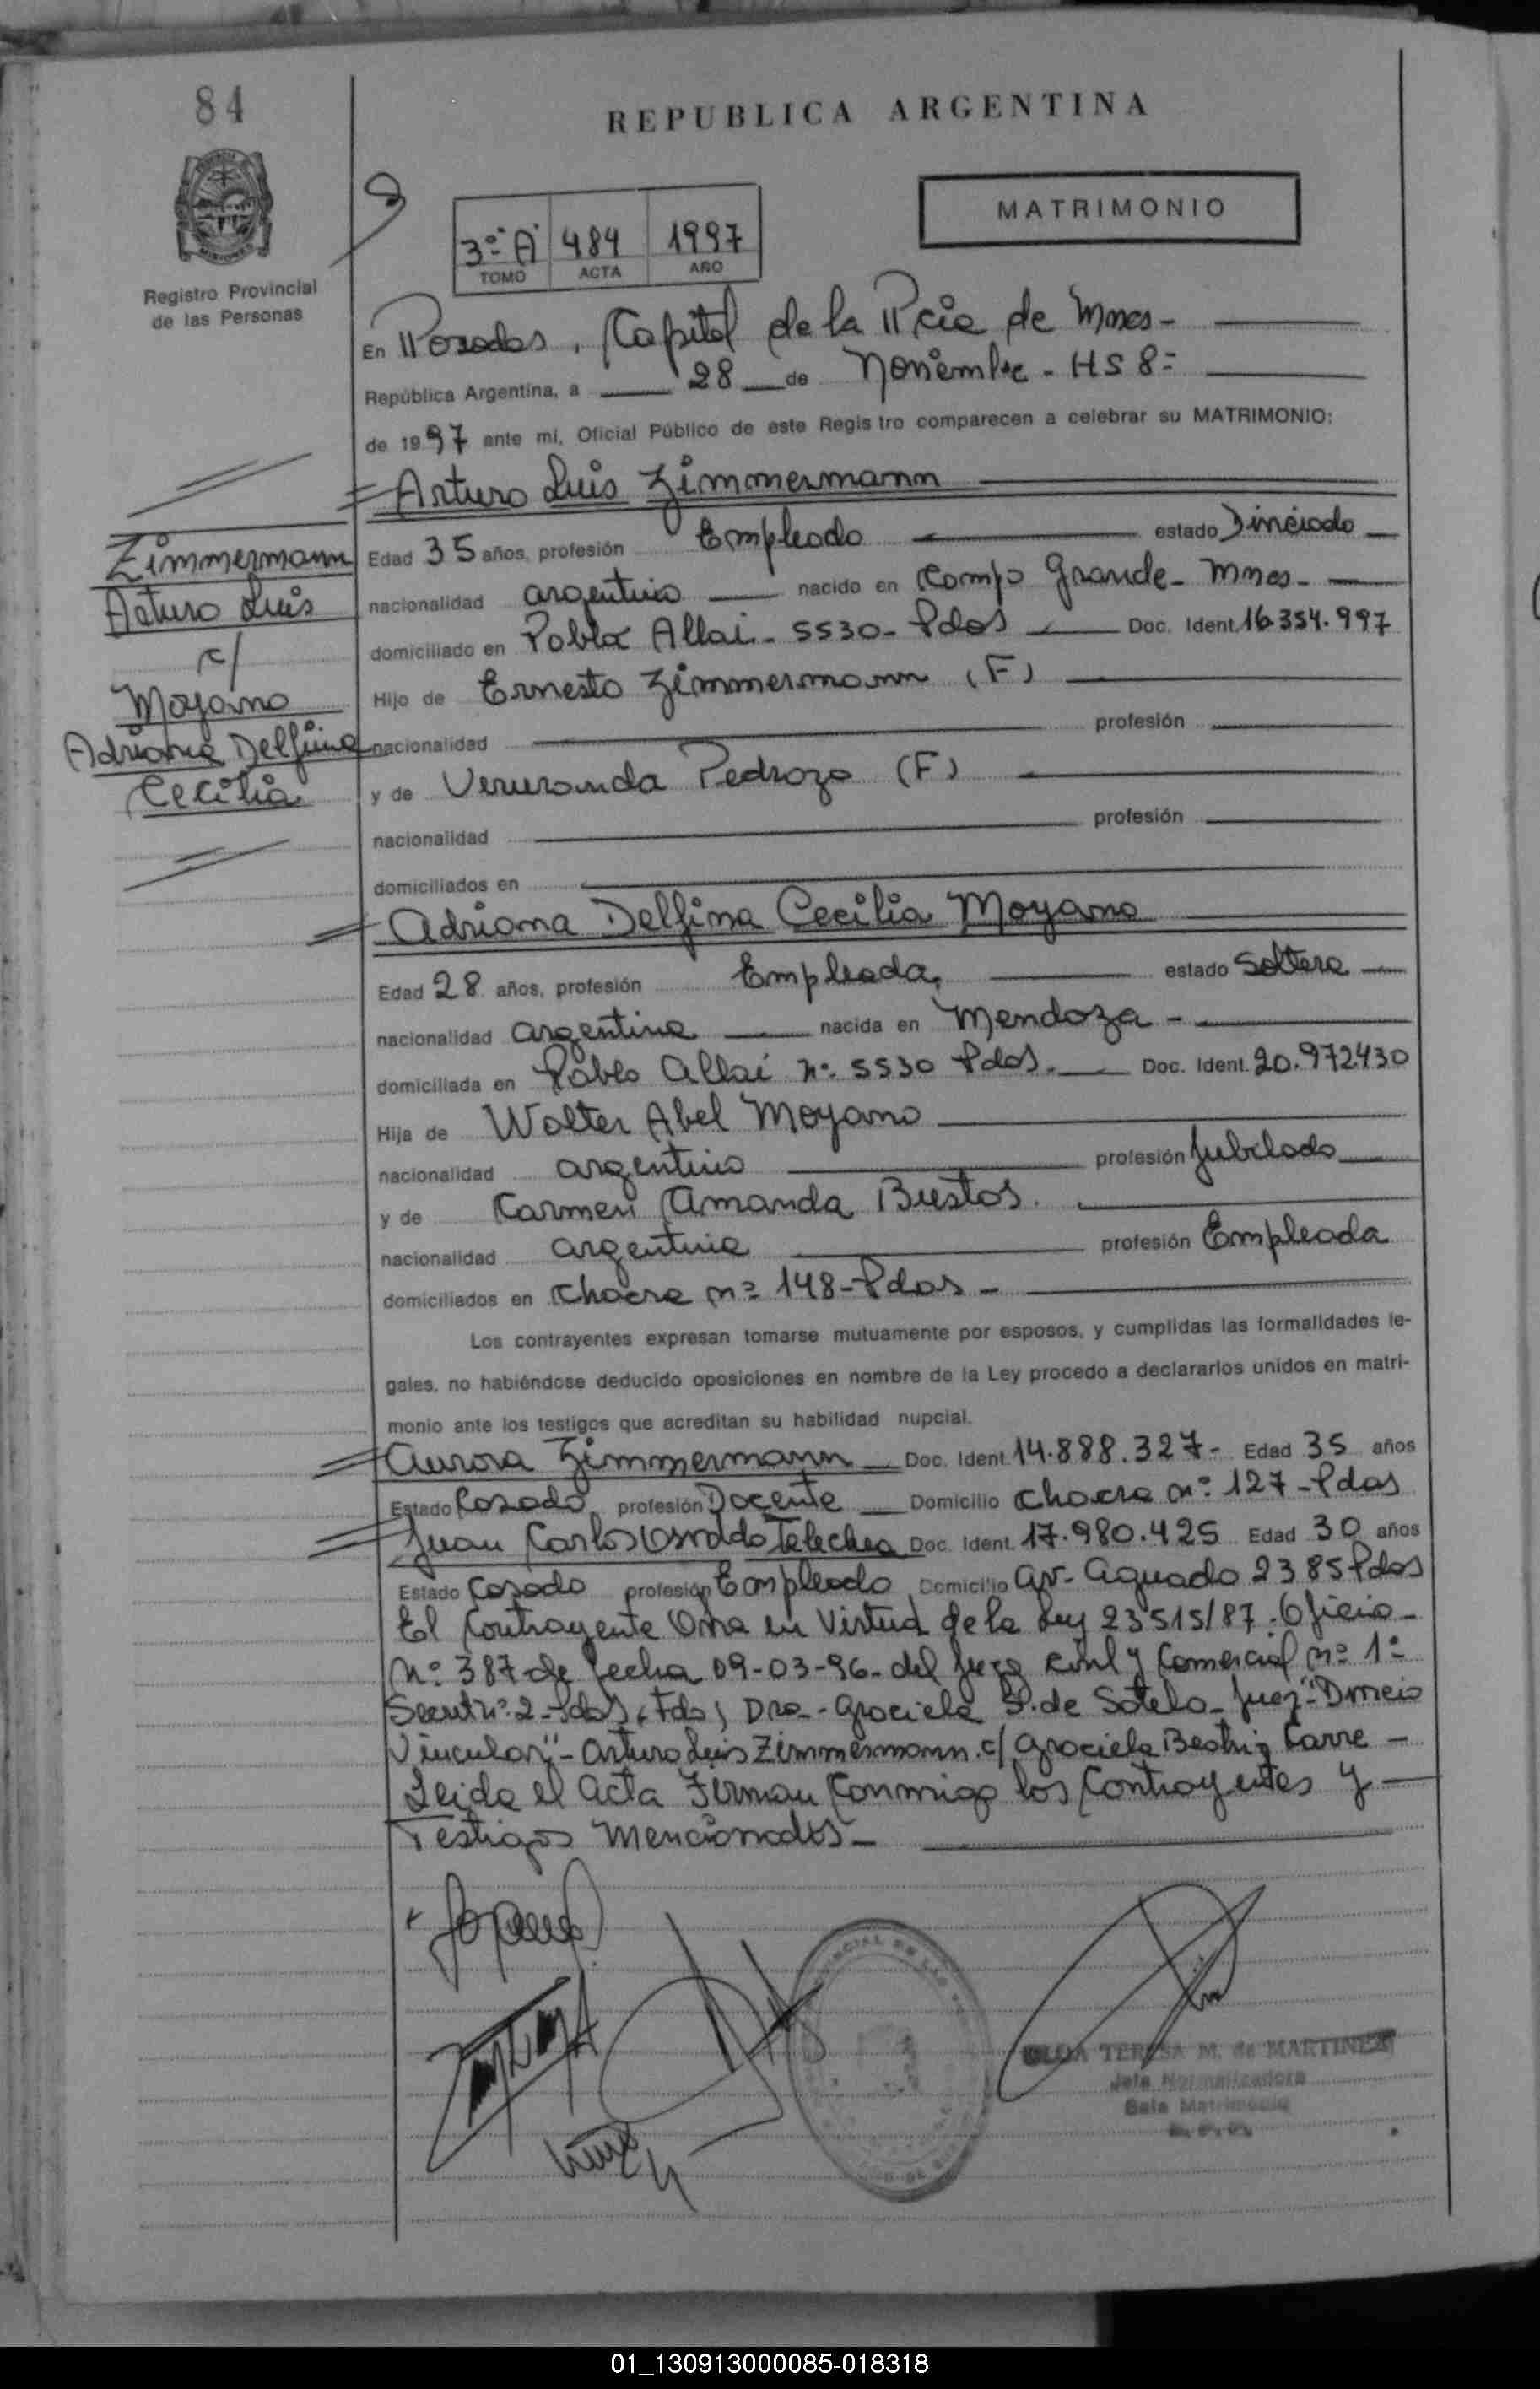 84
REPUBLICA ARGENTINA
MATRIMONIO
3º "A" 484 1997
TOMO ACTA AÑO
Registro Provincial
de las Personas
En Posadas, Capital de la Pcia de Mnes-
República Argentina, a 28 de Noviembre - HS 8=
de 1997 ante mi, Oficial Público de este Regis tro comparecen a celebrar su MATRIMONIO:
Arturo Luis Zimmermann
Zimmermann
Arturo Luis
c/
Moyano
Adriana Delfina
Cecilia
Edad 35 años, profesión Empleado estado Divorciado
nacionalidad argentino nacido en Campo Grande - Mnes-
domiciliado en Pablo Allai - 5530 - Pdas Doc. Ident. 16.354.997
Hijo de Ernesto Zimmermann (F)
nacionalidad profesión
y de Pedrozo (F)
nacionalidad profesión
domiciliados en
Adriana Delfina Cecilia Moyano
Edad 28 años, profesión Empleada, estado Soltera
nacionalidad argentina nacida en Mendoza -
domiciliada en Pablo Allai nº 5530 Pdas. Doc. Ident. 20.972430
Hija de Walter Abel Moyano
nacionalidad argentino profesión Jubilado
y de Carmen Amanda Bustos.
nacionalidad argentina profesión Empleada
domiciliados en Chacra nº 148 - Pdas -
Los contrayentes expresan tomarse mutuamente por esposos, y cumplidas las formalidades le-
gales, no habiéndose deducido oposiciones en nombre de la Ley procedo a declararlos unidos en matri-
monio ante los testigos que acreditan su habilidad nupcial.
Aurora Zimmermann Doc. Ident. 14.888.327- Edad 35 años
Estado Casado profesión Docente Domicilio Chacra nº 127 - Pdas
Juan Carlos Osvaldo Telechea Doc. Ident. 17.980.425 Edad 30 años
Estado Casado profesión Empleado Domicilio Av. Aguado 2385 Pdas
El Contrayente en Virtud de la Ley 23515/87. Oficio
Nº 387 de fecha 09-03-96 - del Juzg Civil y Comercial nº 1-
Secret nº 2 - Pdas, (Fdo) Dra - Graciela de Sotelo - Juez - "Divorcio
Vincular" - Arturo Luis Zimmermann c/ Graciela Beatriz Carre -
Leida el Acta Firman Conmigo los Contrayentes y
Testigos Mencionados -
TERESA M. de MARTINEZ
Jefa Normalizadora
Sala Matrimonio
01_130913000085-018318